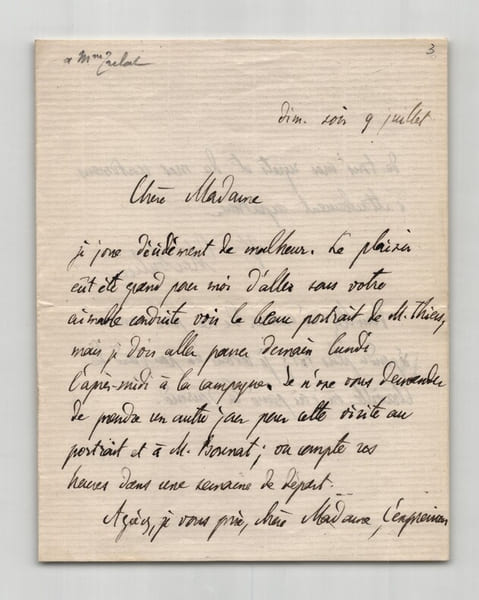 a Mme Trélat
3
dim. soir 9 juillet
Chère Madame
je joue décidément de malheur. Le plaisir
eût été grand pour moi d'aller sous votre
aimable conduite voir le beau portrait de M. Thiers,
mais je dois aller passer demain lundi
l'après-midi à la campagne. Je n'ose vous demander
de prendre un autre jour pour cette visite au
portrait et à M. Bonnat ; on compte vos
heures dans une semaine de départ.
Agréez, je vous prie, chère Madame, l'expression